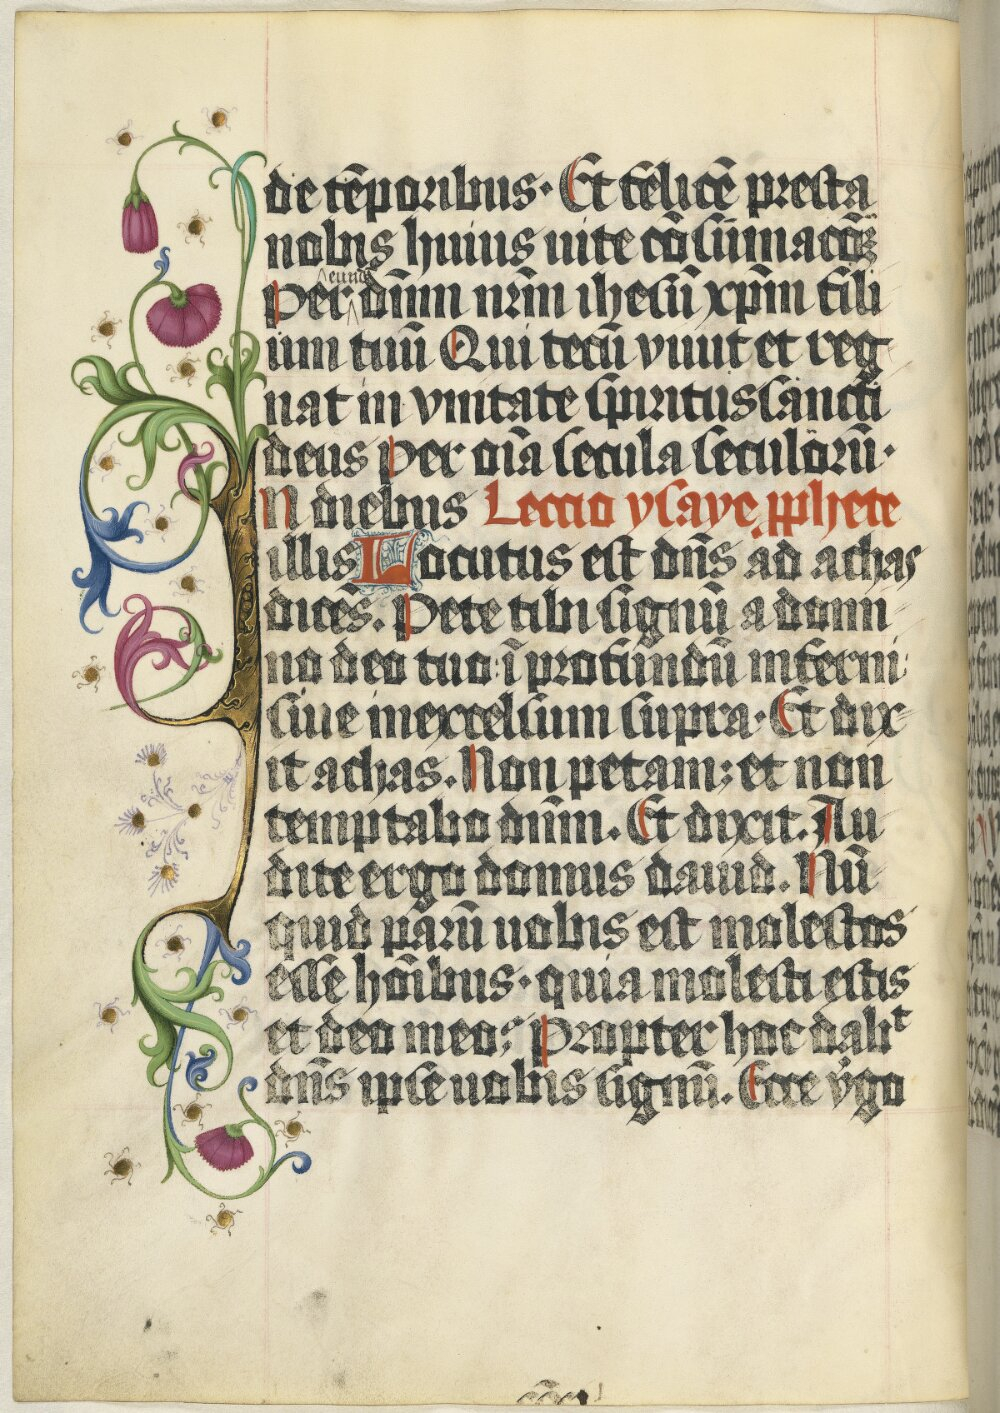 de tēporibus. Et felicē presta
nobis huius uite cōsūmacōȝ
eund
Per dn̄m nr̄m ihesū xp̄m fili
um tuū Qui tecū viuit et reg
nat in vnitate spiritus sancti
deus Per om̄a secula seculorū.
In diebus Leccio ysaye p̄phete
illis Locutus est dn̄s ad achas
dicēs. Pete tibi signū a domi
no deo tuo: ī profundū inferni
siue in excelsum supra. Et dix
it achas. Non petam; et non
temptabo dn̄m. Et dixit. Au
dite ergo domus dauid. Nū
quid parū uobis est molestos
esse hoībus. quia molesti estis
et deo meo; Propter hoc dabit
dn̄s ipse uobis signū. Ecce v̄go